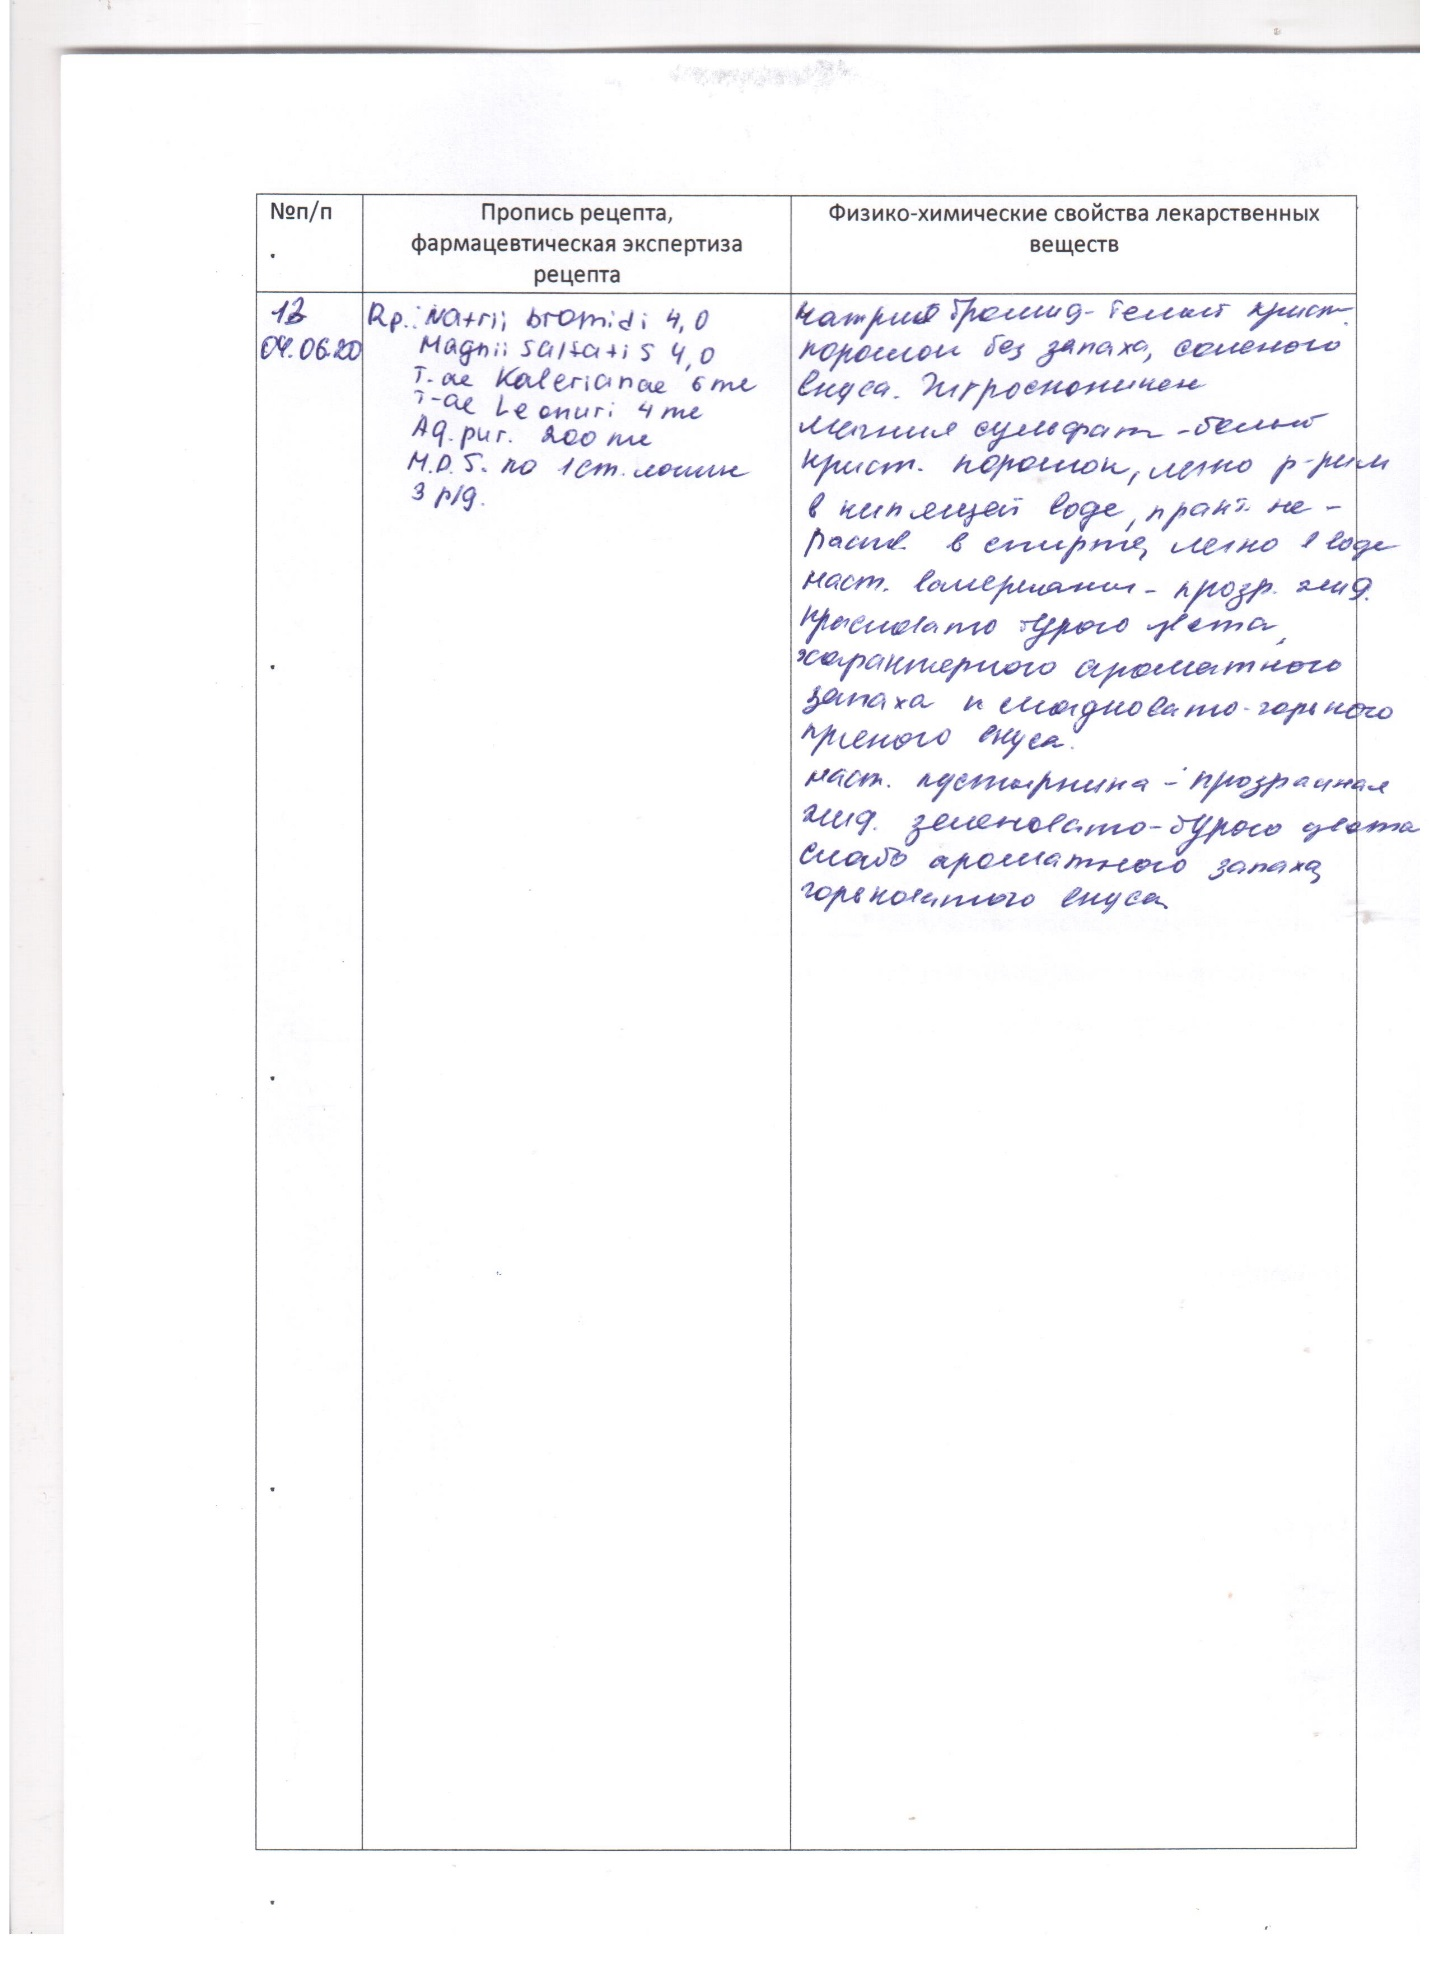 №п/п
.
Пропись рецепта,
фармацевтическая экспертиза
рецепта
Физико-химические свойства лекарственных
веществ
04.06.20
Rp.: Natrii bromidi 4,0
Magnii sulfatis 4,0
T-ae Valerianae 6 ml
T-ae Leonuri 4 ml
Aq. pur. 200 ml
M.D.S. по 1 ст. ложке
3 р/д.
натрия бромид - белый крист.
порошок без запаха, соленого
вкуса. Гигроскопичен
магния сульфат - белый
крист. порошок, легко р-рим
в кипящей воде, практ. не -
раств. в спирте, легко в воде
наст. валерианы - прозр. жид.
красновато бурого цвета,
характерного ароматного
запаха и сладковато-горького
пряного вкуса.
наст. пустырника - прозрачная
жид. зеленовато-бурого цвета
слабо ароматного запаха,
горьковатого вкуса